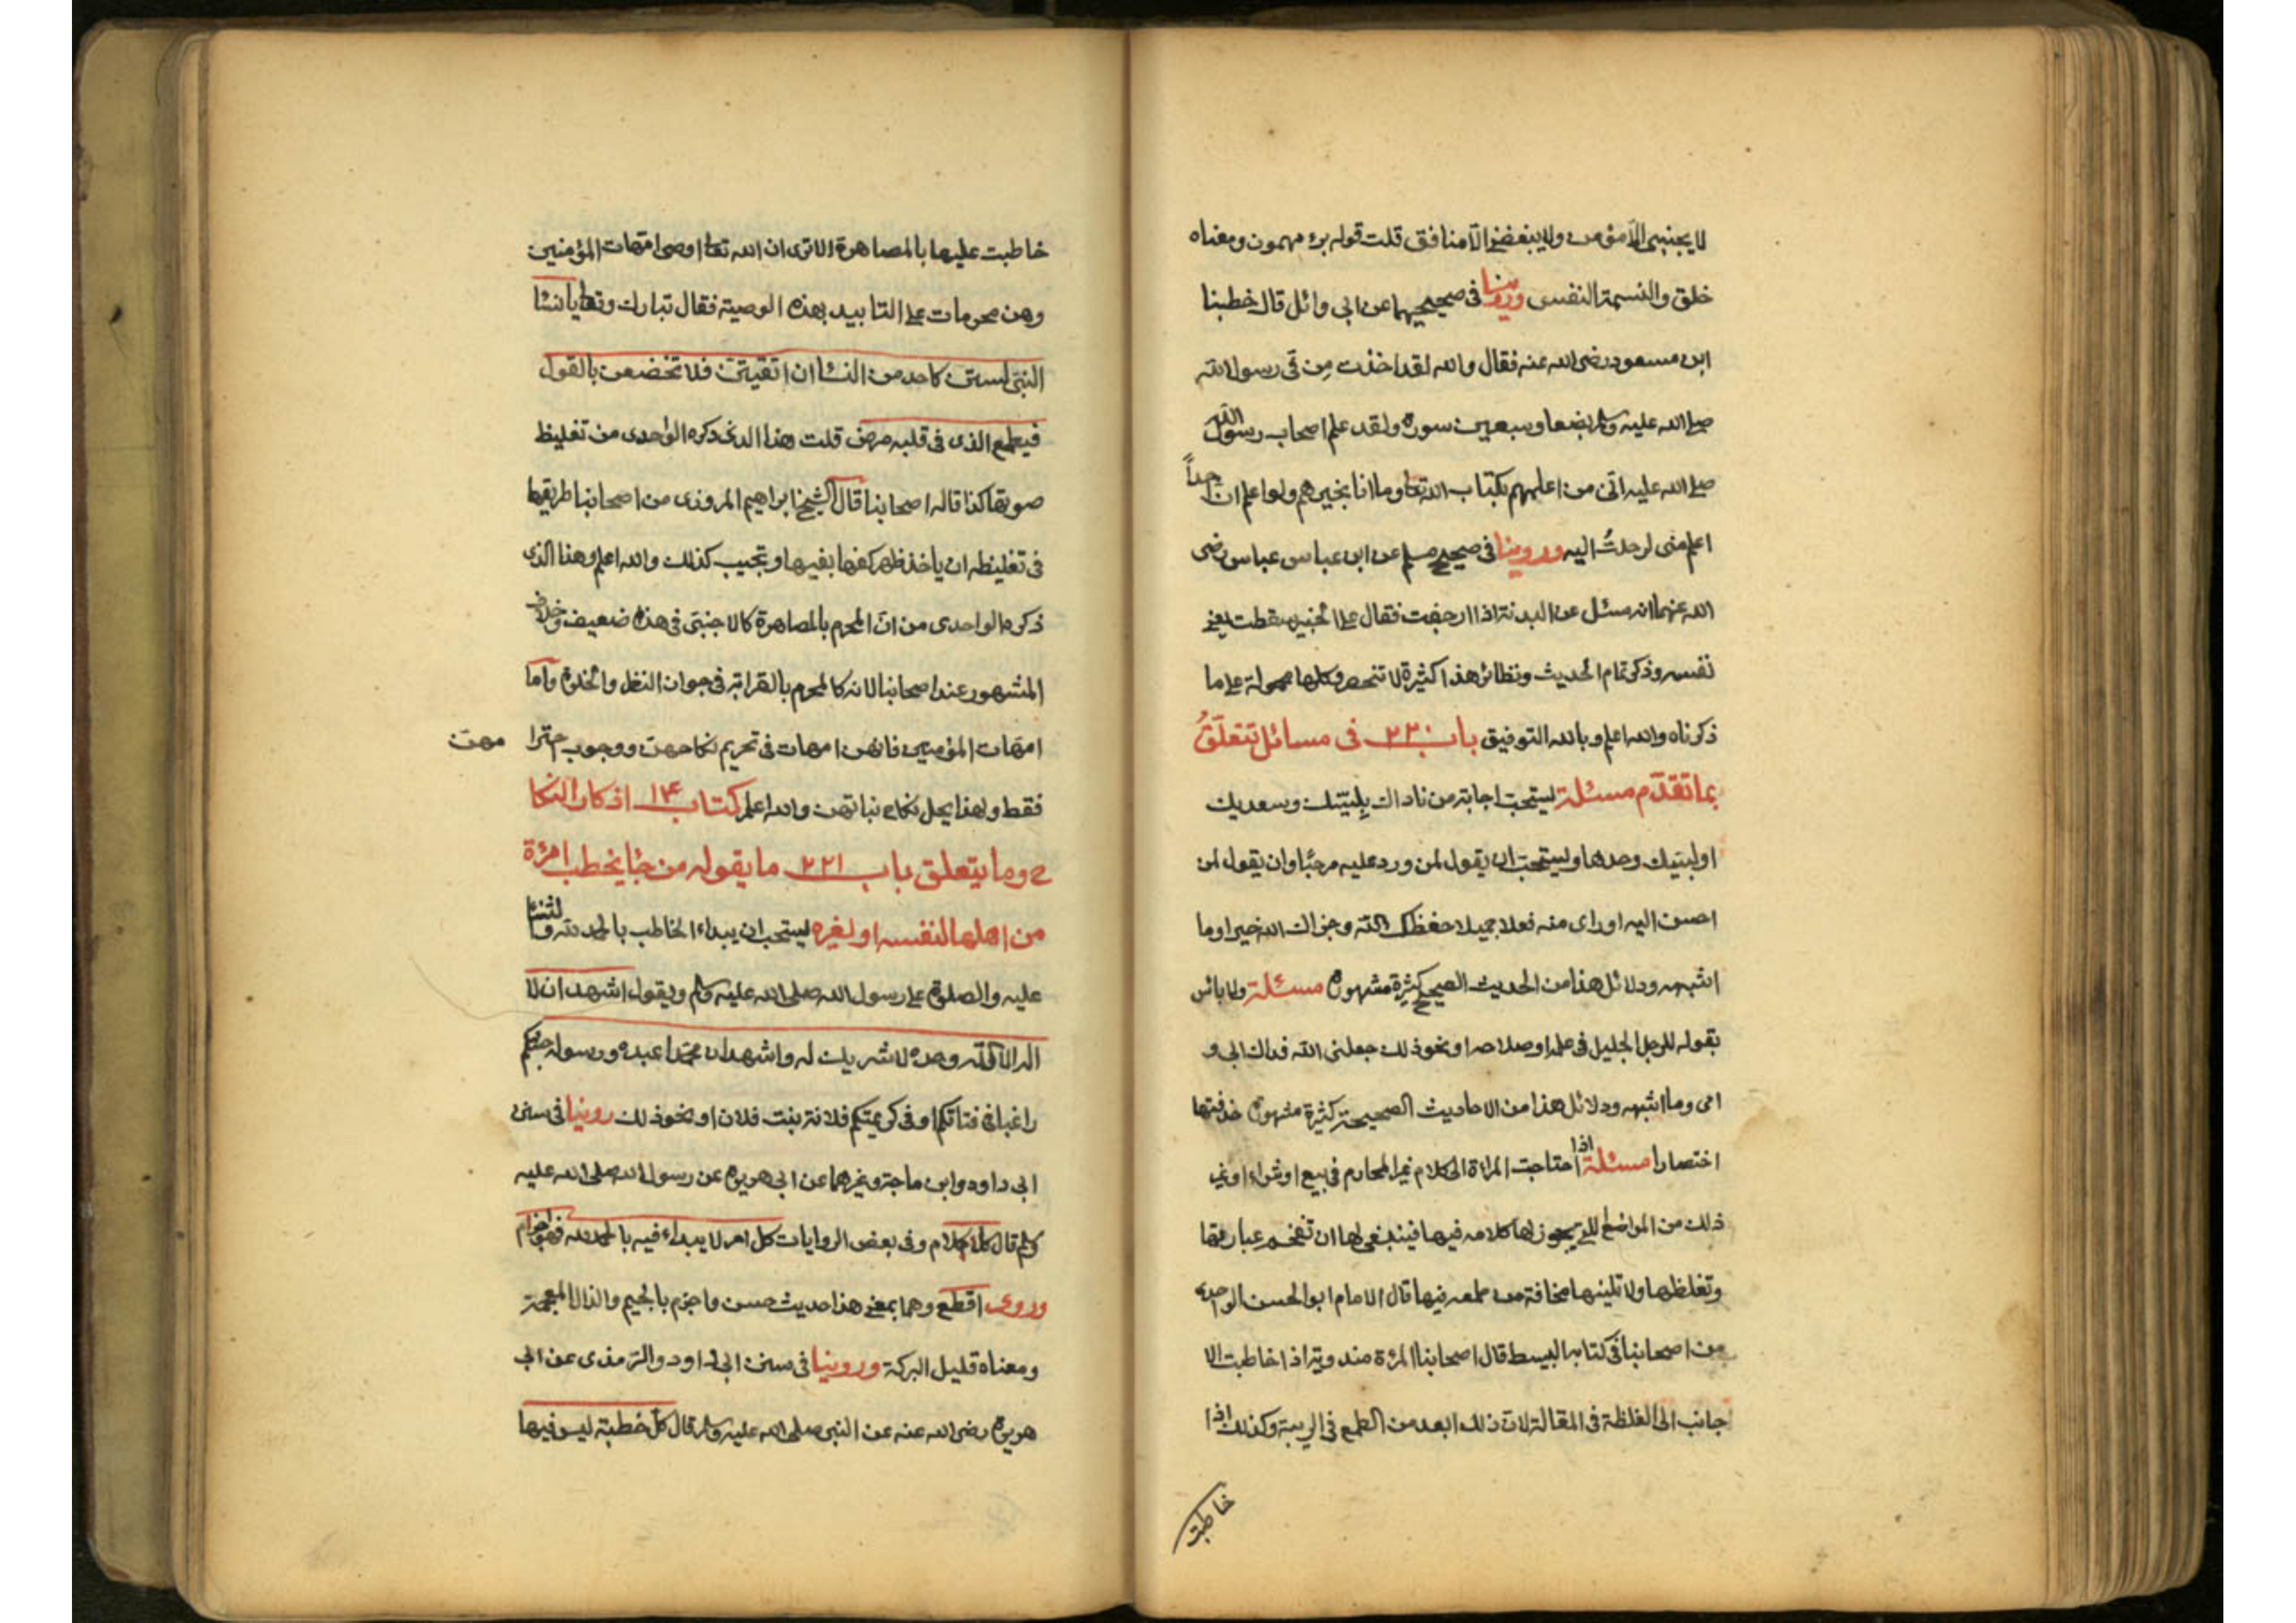 لا يحبني الا مؤمن ولا يبغضني الا منافق قلت قوله برء مهموز ومعناه
خلق والنسمة النفس وروينا في صحيحيهما عن ابي وائل قال خطبنا
ابن مسعود رضى الله عنه فقال والله لقد اخذت مِن في رسول الله
صلى الله عليه وسلم بضعا وسبعين سورة ولقد علم اصحاب رسول الله
صلى الله عليه اني من اعلمهم بكتاب الله تعا وما انا بخيرهم ولو اعلم ان احداً
اعلم منى لرحلتُ اليه وروينا في صحيح مسلم عن ابن عباس عباس رضى
الله عنهما انه سئل عن البدنة اذا ارحفت فقال على الخبير سقطت يعني
نفسه وذكر تمام الحديث ونظائر هذا كثيرة لا تنحصر وكلها محمولة على ما
ذكرناه والله اعلم وبالله التوفيق باب ٢٣٠ في مسائل تتعلّقُ
بما تقدّم مسئلة يستحب اجابة من ناداك بلبّيك وسعديك
او لبيك وحدها ويستحب ان يقول لمن ورد عليه مرحبًا وان يقول لمن
احسن اليه او راى منه فعلا جميلا حفظك الله وجزاك الله خيرا وما
اشبهه ودلائل هذا من الحديث الصحيح كثيرة مشهورة مسئلة ولا بائس
بقوله للرجل الجليل في علمه او صلاحه او نحو ذلك جعلنى الله فداك ابى و
امى وما اشبهه ودلائل هذا من الاحاديث الصحيحة كثيرة مشهورة حذفتها
اختصارا مسئلة اذا احتاجت المراة الى كلام غير المحارم في بيع او شراء او غير
ذلك من المواضع التي يجوز لها كلامه فيها فينبغى لها ان تفخم عبارتها
وتغلظها ولا تلينها مخافة من طمعه فيها قال الامام ابو الحسن الواحدى
من اصحابنا في كتابه البسيط قال اصحابنا المرئة مندوبة اذا خاطبت الا
جانب الى الغلظة في المقالة لان ذلك ابعد من الطمع في الريبة وكذلك اذا
خاطبت
خاطبت عليها بالمصاهرة الا ترى ان الله تعا اوصى امهات المؤمنين
وهن محرمات على التابيد بهذه الوصية فقال تبارك وتعا يا نسٓا
النبيّ لستن كاحد من النسٓا ان اتقيتنّ فلا تخضعن بالقول
فيطمع الذى في قلبه مرض قلت هذا الذى ذكره الواحدى من تغليظ
صوتها كذا قاله اصحابنا قال الشيخ ابراهيم المروزى من اصحابنا طريقها
في تغليظه ان ياخذ ظهر كفها بفيها وتجيب كذلك والله اعلم وهذا الذى
ذكره الواحدى من انّ المحرم بالمصاهرة كالاجنبيّ في هذه ضعيف وخلاف
المشهور عند اصحابنا لانه كالمحرم بالقرابة في جواز النظر والخلوة واما
امهات المؤمنين فانهن امهات في تحريم نكاحهن ووجوب احترا مهن
فقط ولهذا يحل نكاح بناتهن والله اعلم كتاب ١٤ اذكار النكا
ح وما يتعلق باب ٢٢١ ما يقوله من جٓا يخطب امرئة
من اهلها لنفسه او لغيره يستحب ان يبداء الخاطب بالحمد لله والثنٓا
عليه والصلوة على رسول الله صلى الله عليه وسلم ويقول اشهد ان لا
اله الا الله وحده لا شريك له واشهد ان محمّدا عبده ورسوله جئتكم
راغبا في فتاتكم او في كريمتكم فلانة بنت فلان او نحو ذلك روينا في سنن
ابى داود وابن ماجة وغيرهما عن ابى هريرة عن رسول الله صلى الله عليه
وسلم قال كل كلام وفي بعض الروايات كل امر لا يبداء فيه بالحمد لله فهو اجزم
وروى اقطع وهما بمعنى هذا حديث حسن واجزم بالجيم والذال المعجمة
ومعناه قليل البركة وروينا في سنن ابى داود والترمذى عن ابى
هريرة رضى الله عنه عن النبى صلى الله عليه وسلم قال كلّ خطبة ليس فيها